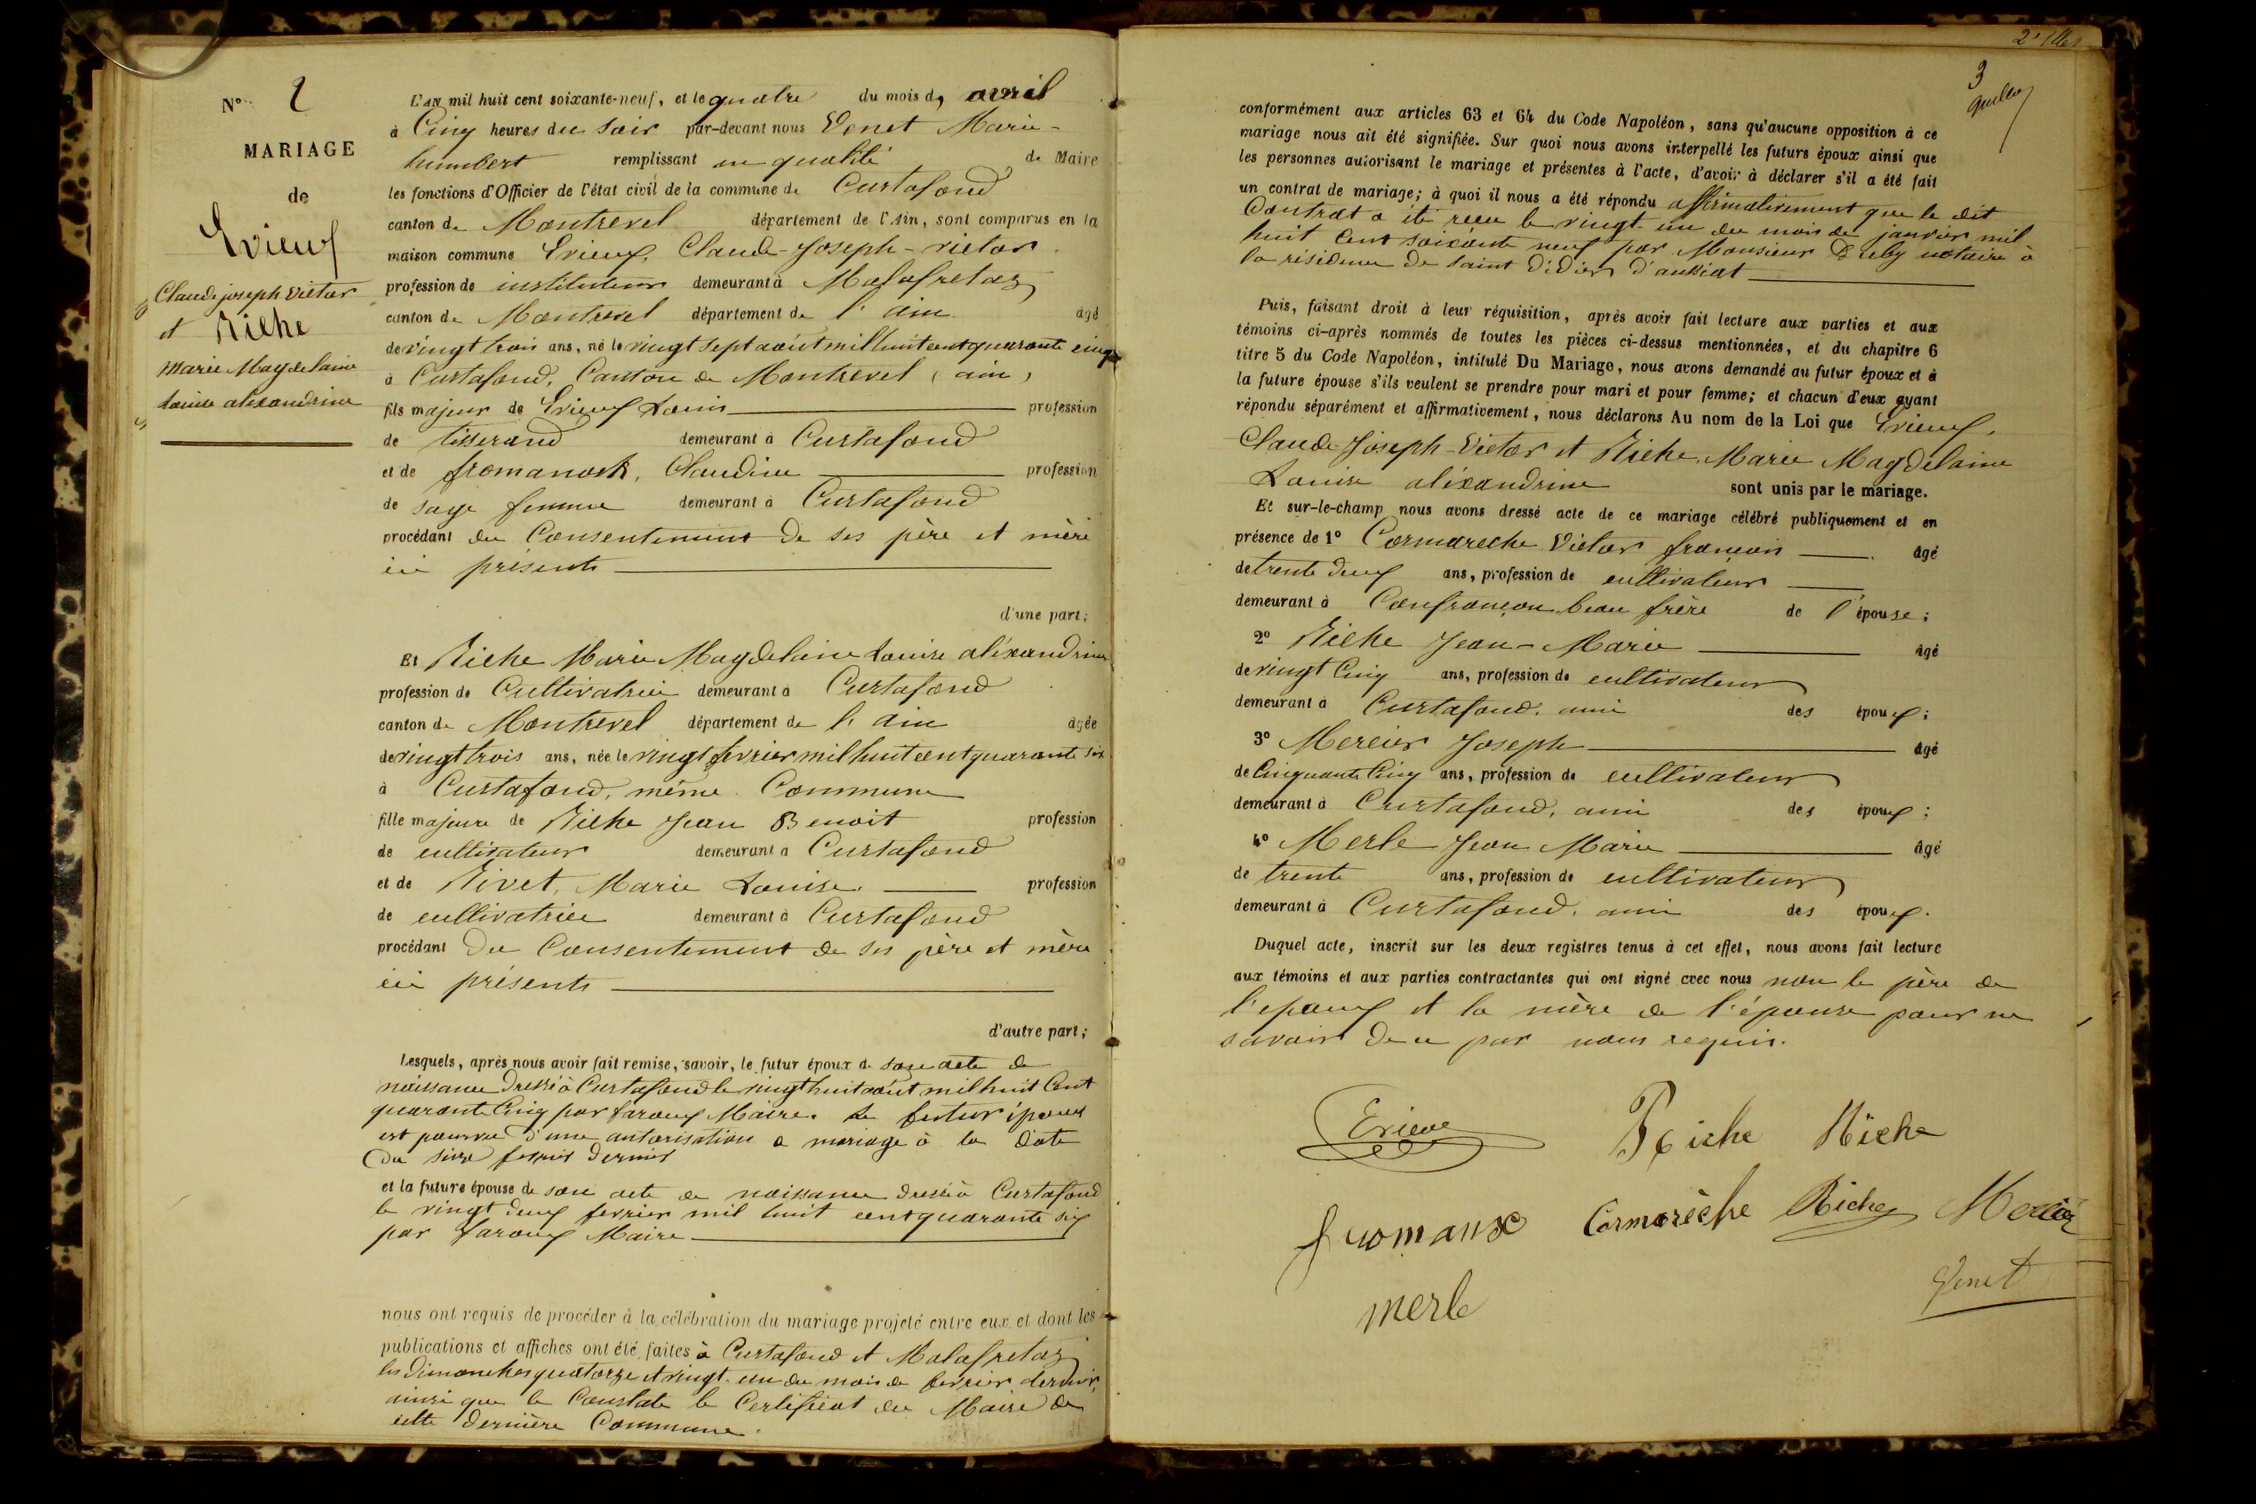 N° 2
MARIAGE
de
Evieux
Claude joseph Victor
et Riche
Marie Magdelaine
Louise alexandrine
L'AN mil huit cent soixante-neuf, et le quatre du mois d, avril
à Cinq heures du soir par-devant nous Venet Marie-
humbert remplissant en qualité de Maire
les fonctions d'Officier de l'état civil de la commune de Curtafond
canton de Montrevel département de l'Ain, sont comparus en la
maison commune Evieux, Claude-Joseph-victor
profession de instituteur demeurant à Malafretaz
canton de Montrevel département de l'ain âgé
de vingt trois ans, né le vingt sept août mil huit cent quarante cinq
à Curtafond, Canton de Montrevel (ain)
fils majeur de Evieux Louis profession
de tisserand demeurant à Curtafond
et de Claudine profession
de sage femme demeurant à Curtafond
procédant du Consentement de ses père et mère
ici présents
d'une part;
Et Riche Marie Magdelaine Louise aléxandrine
profession de Cultivatrice demeurant à Curtafond
canton de Montrevel département de l'ain âgée
de vingt trois ans, née le vingt fevrier mil huit cent quarante six
à Curtafond, même Commune
fille majeure de Riche Jean Benoit profession
de cultivateur demeurant à Curtafond
et de Rivet, Marie Louise profession
de cultivatrice demeurant à Curtafond
procédant du Consentement de ses père et mère
ici présents
d'autre part;
Lesquels, après nous avoir fait remise, savoir, le futur époux de son acte de
naissance dressé à Curtafond le vingt huit août mil huit Cent
quarante Cinq par faroux Maire. Le futur époux
est pourvu d'une autorisation a mariage à la date
Du seize fevrier dernier
et la future épouse de son acte de naissance dressé à Curtafond
le vingt deux fevrier mil huit cent quarante six
par faroux Maire
nous ont requis de procéder à la célébration du mariage projeté entre eux et dont les
publications et affiches ont été faites à Curtafond et Malafretaz
les dimanches quatorze et vingt-un du mois de fevrier dernier,
ainsi que le Constate le Certificat du Maire de
cette dernière Commune.
3
conformément aux articles 63 et 64 du Code Napoléon, sans qu'aucune opposition à ce
mariage nous ait été signifiée. Sur quoi nous avons interpellé les futurs époux ainsi que
les personnes autorisant le mariage et présentes à l'acte, d'avoir à déclarer s'il a été fait
un contrat de mariage; à quoi il nous a été répondu affirmativement que le dit
Contrat a été reçu le vingt-un du mois de janvier mil
huit Cent soixante neuf par Monsieur notaire à
la résidence de saint Didier d'aussiat
Puis, faisant droit à leur réquisition, après avoir fait lecture aux parties et aux
témoins ci-après nommés de toutes les pièces ci-dessus mentionnées, et du chapitre 6
titre 5 du Code Napoléon, intitulé Du Mariage, nous avons demandé au futur époux et à
la future épouse s'ils veulent se prendre pour mari et pour femme; et chacun d'eux ayant
répondu séparément et affirmativement, nous déclarons Au nom de la Loi que Evieux,
Claude-Joseph-Victor et Riche, Marie Magdelaine
Louise aléxandrine sont unis par le mariage.
Et sur-le-champ nous avons dressé acte de ce mariage célébré publiquement et en
présence de 1° Cormareche Victor françois âgé
de trente deux ans, profession de cultivateur
demeurant à Confrançon beau frère de l'épouse;
2° Riche Jean-Marie âgé
de vingt Cinq ans, profession de cultivateur
demeurant à Curtafond, ami des époux;
3° Mercier Joseph âgé
de Cinquante Cinq ans, profession de cultivateur
demeurant à Curtafond, ami des époux;
4° Merle Jean Marie âgé
de trente ans, profession de cultivateur
demeurant à Curtafond, ami des époux.
Duquel acte, inscrit sur les deux registres tenus à cet effet, nous avons fait lecture
aux témoins et aux parties contractantes qui ont signé avec nous non le père de
l'epoux et la mère de l'épouse pour ne
savoir de ce par nous requis.
Evieux
Riche Riche
fromanx Cormorèche Riche Mercier
Venet
merle